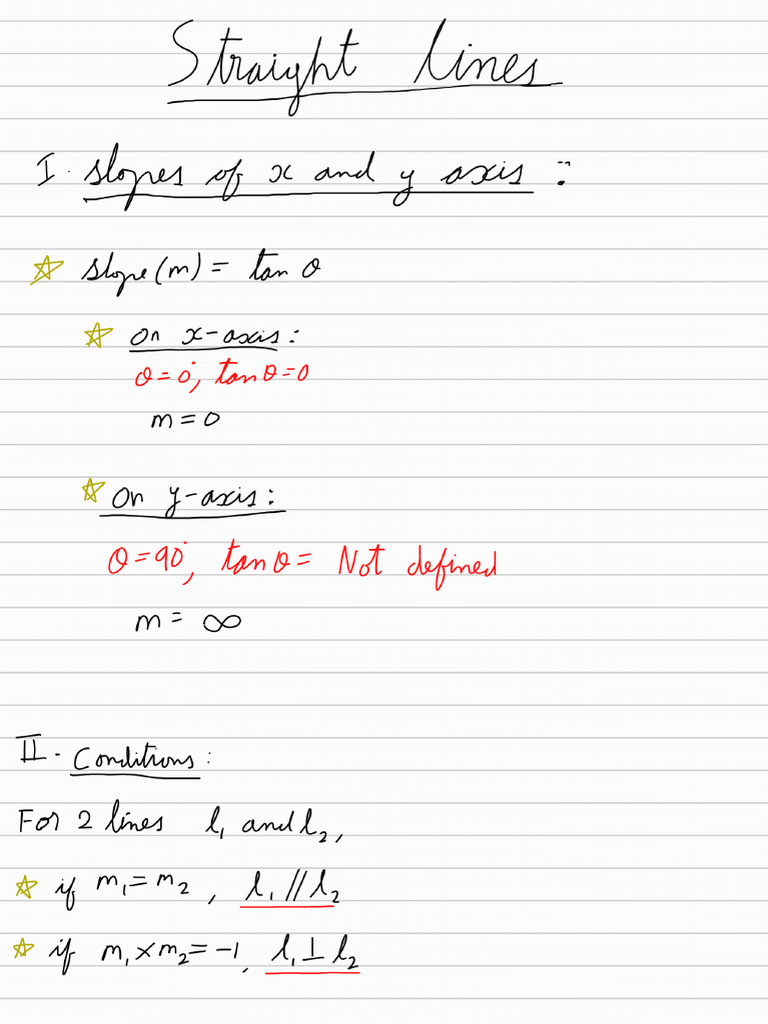 Straight lines
I. slopes of x and y axis :-
☆ slope(m) = tan θ
☆ On x-axis:
θ = 0°, tan θ = 0
m = 0
☆ On y-axis:
θ = 90°, tan θ = Not defined
m = ∞
II. Conditions:
For 2 lines l₁ and l₂,
☆ if m₁ = m₂, l₁ // l₂
☆ if m₁ × m₂ = -1, l₁ ⊥ l₂